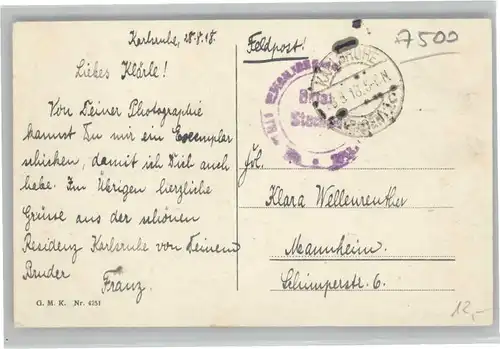 Karlsruhe, 28.8.18.
Feldpost!
7500
Liebes Klärle!
Von Deiner Photographie
kannst Du mir ein Exemplar
schicken, damit ich Dich auch
habe. Im Übrigen herzliche
Grüsse aus der schönen
Residenz Karlsruhe von Deinem
Bruder
Franz.
KARLSRUHE
Frl.
Klara Wellenreuther
Mannheim.
Schimperstr. 6.
G. M. K. Nr. 4251
12,-